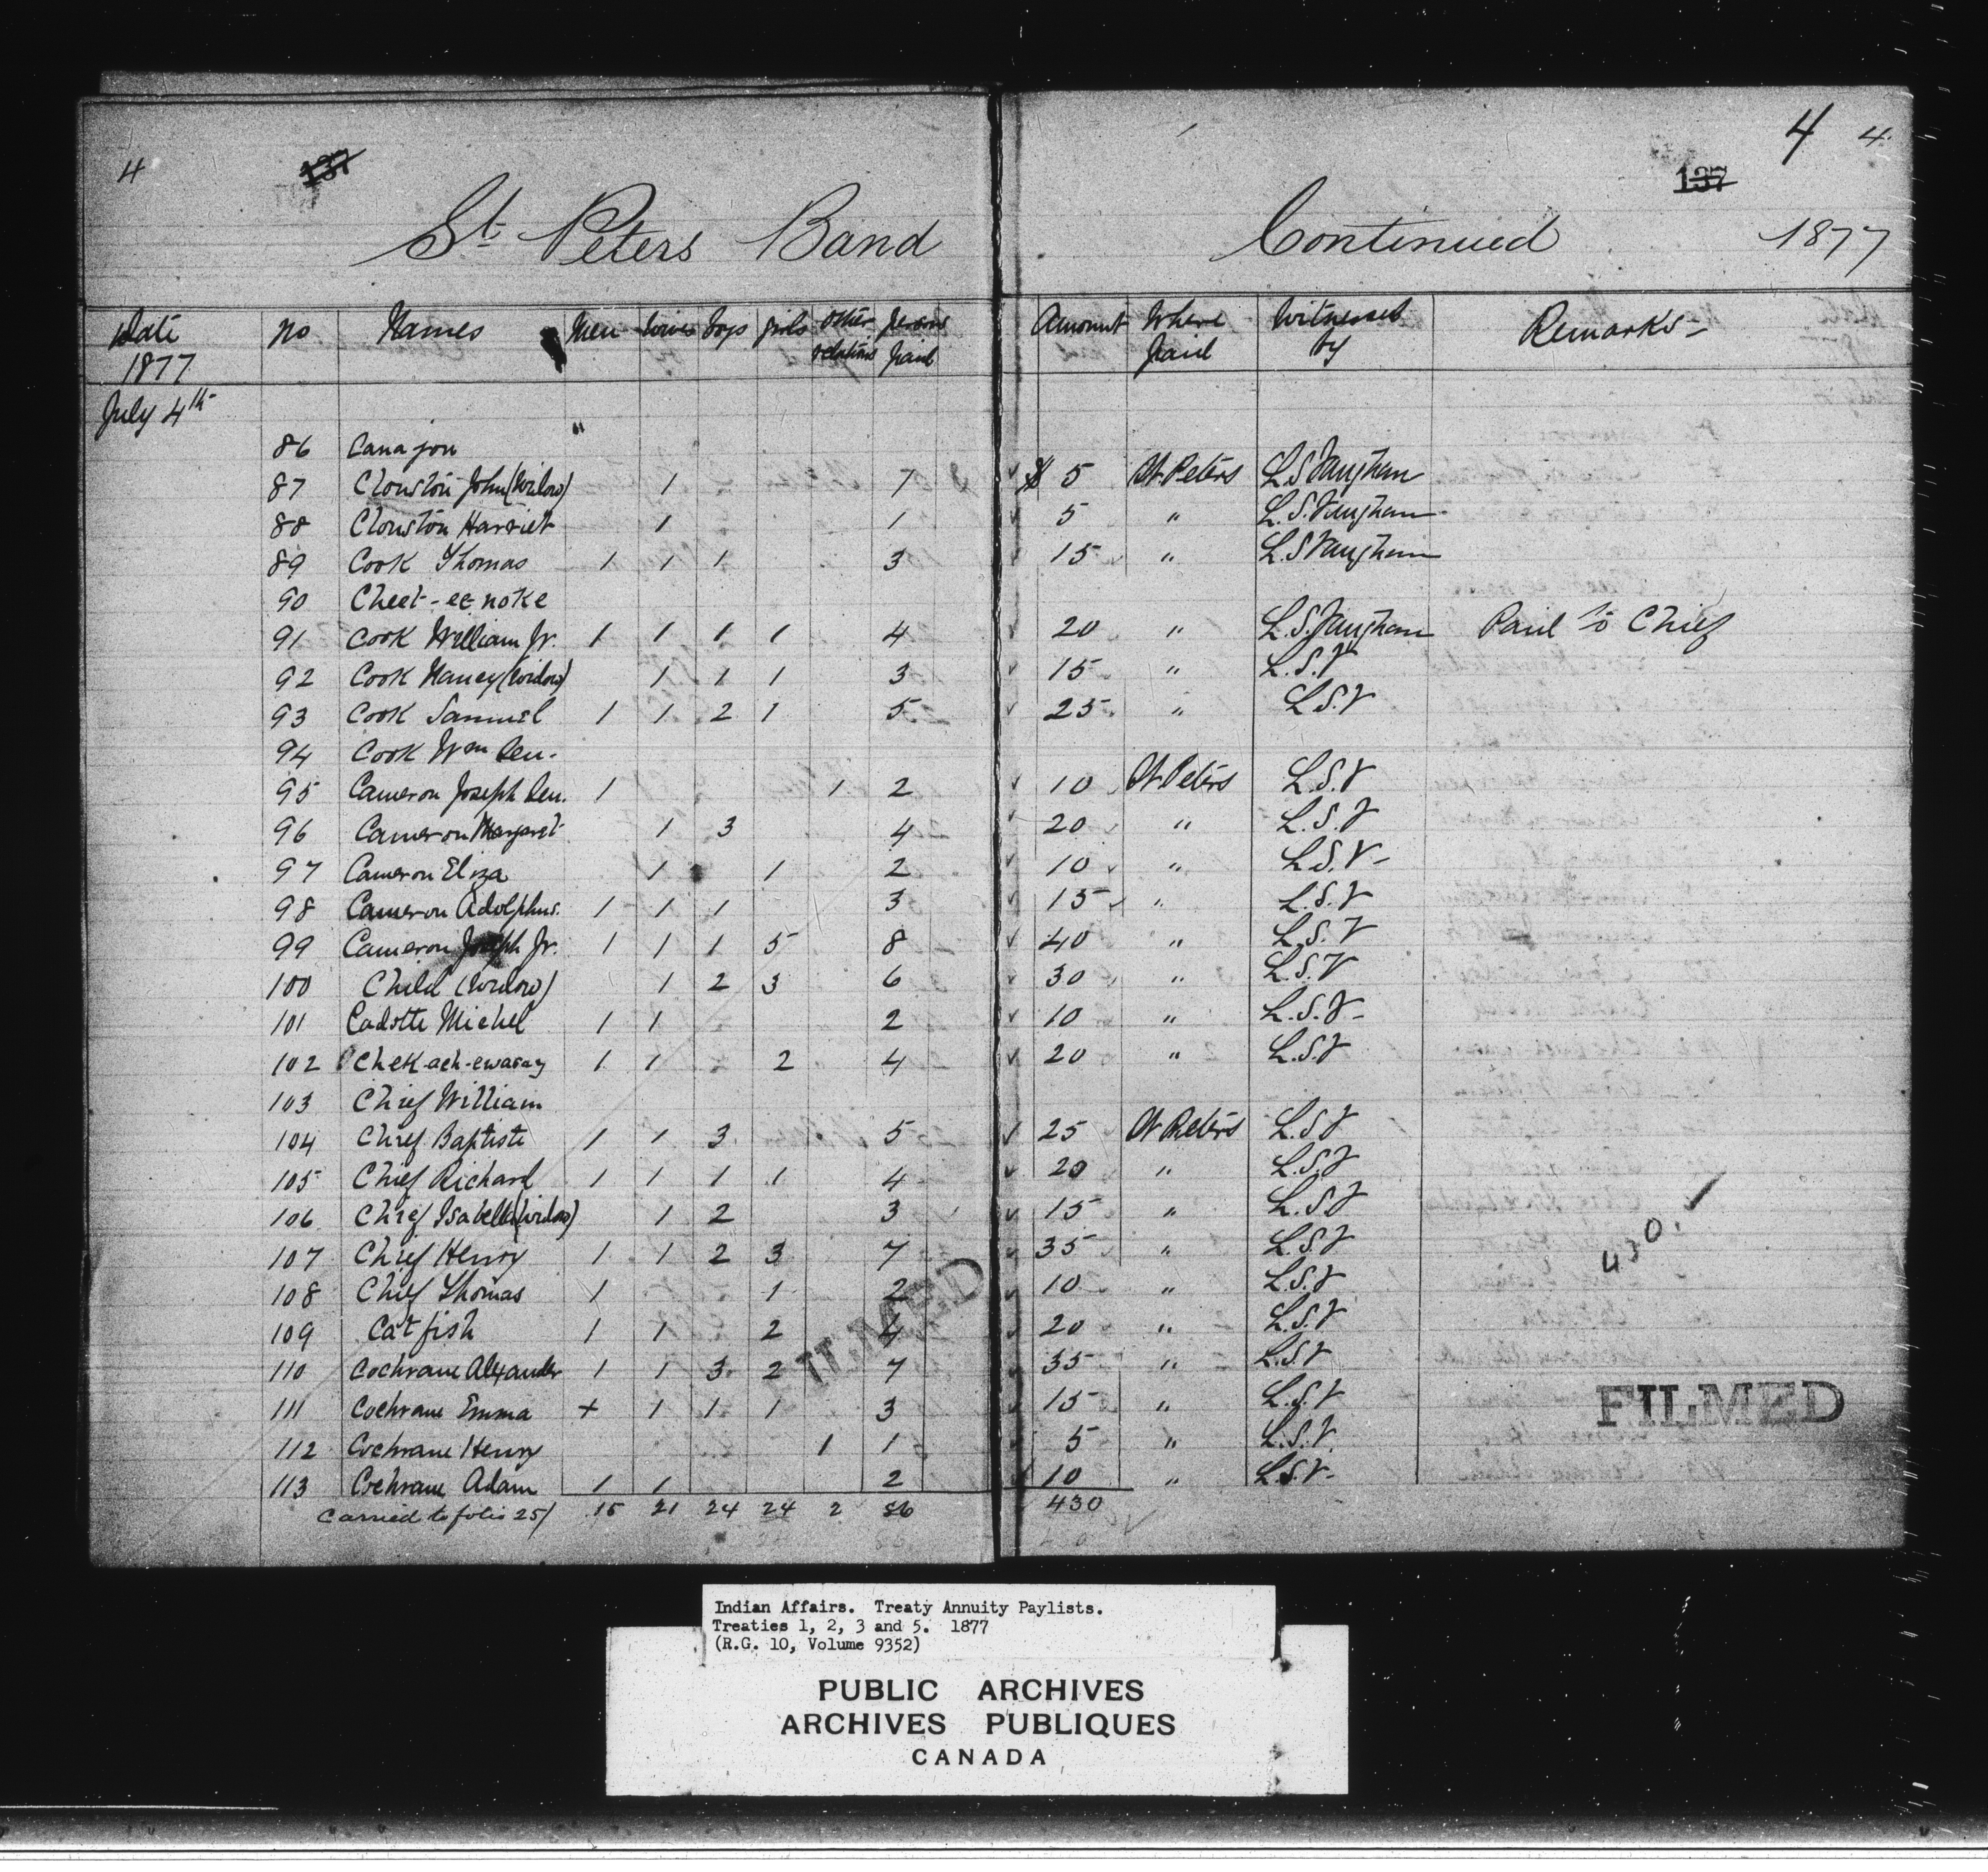 4 137 137 4 4.
St. Peters Band Continued 1877
Date 1877 No Names Men Wives Boys Girls Other relations Persons paid Amount Where paid Witnessed by Remarks
July 4th
86 Canajou "
87 Clouston John (Widow) 1 1 $ 5 St. Peters L.S. Vaughan
88 Clouston Harriet 1 1 5 " L.S. Vaughan
89 Cook Thomas 1 1 1 3 15 " L.S. Vaughan
90 Cheet-ee-noke
91 Cook William Jr. 1 1 1 1 4 20 " L.S. Vaughan Paid to Chief
92 Cook Nancy (Widow) 1 1 1 3 15 " L.S.V
93 Cook Samuel 1 1 2 1 5 25 " L.S.V
94 Cook Wm Sen.
95 Cameron Joseph Sen. 1 1 2 10 St. Peters L.S.V
96 Cameron Margaret 1 3 4 20 " L.S.V
97 Cameron Eliza 1 1 2 10 " L.S.V-
98 Cameron Adolphus. 1 1 1 3 15 " L.S.V
99 Cameron Joseph Jr. 1 1 1 5 8 40 " L.S.V
100 Child (Widow) 1 2 3 6 30 " L.S.V
101 Cadotte Michel 1 1 2 10 " L.S.V-
102 Chek-ach-ewasay 1 1 2 4 20 " L.S.V
103 Chief William
104 Chief Baptiste 1 1 3 5 25 St. Peters L.S.V
105 Chief Richard 1 1 1 1 4 20 " L.S.V
106 Chief Isabella (Widow) 1 2 3 15 " L.S.V
107 Chief Henry 1 1 2 3 7 35 " L.S.V
430.
108 Chief Thomas 1 1 2 10 " L.S.V
109 Catfish 1 1 2 4 20 " L.S.V
110 Cochrane Alexander 1 1 3 2 7 35 " L.S.V
111 Cochrane Emma + 1 1 1 3 15 " L.S.V
112 Cochrane Henry 1 1 5 " L.S.V.
113 Cochrane Adam 1 1 2 10 " L.S.V-
Carried to folio 25/ 15 21 24 24 2 86 430
FILMED
FILMED
Indian Affairs. Treaty Annuity Paylists.
Treaties 1, 2, 3 and 5. 1877
(R.G. 10, Volume 9352)
PUBLIC ARCHIVES
ARCHIVES PUBLIQUES
CANADA